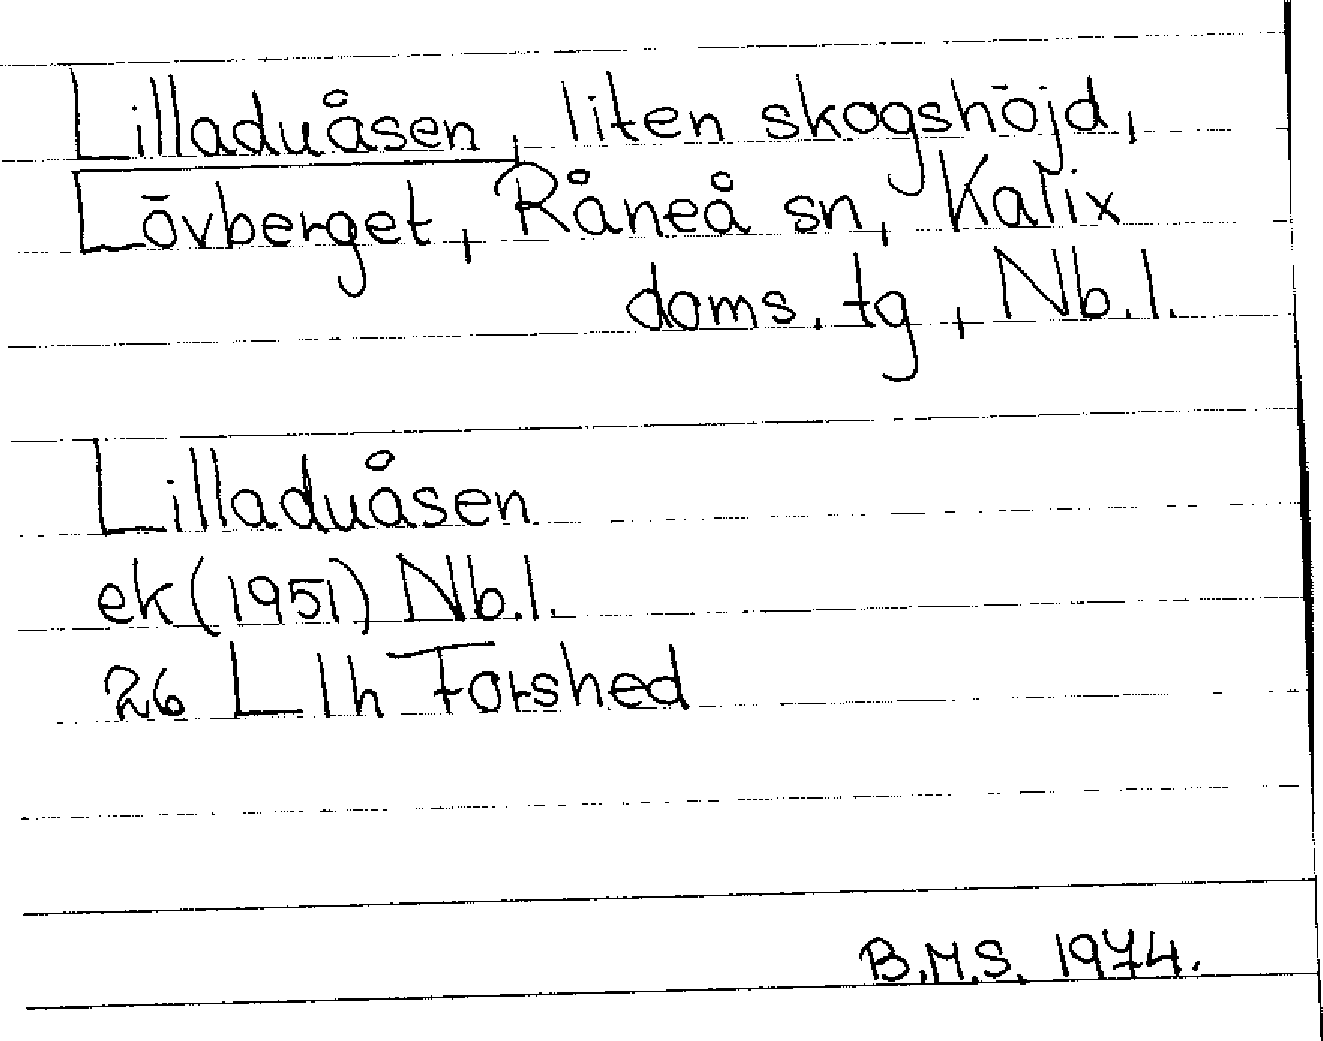 Lilladuåsen, liten skogshöjd,
Lövberget, Råneå sn, Kalix
doms. tg, Nb. l.
Lilladuåsen
ek (1951) Nb. l.
26 L l h Forshed
B.M.S. 1974.